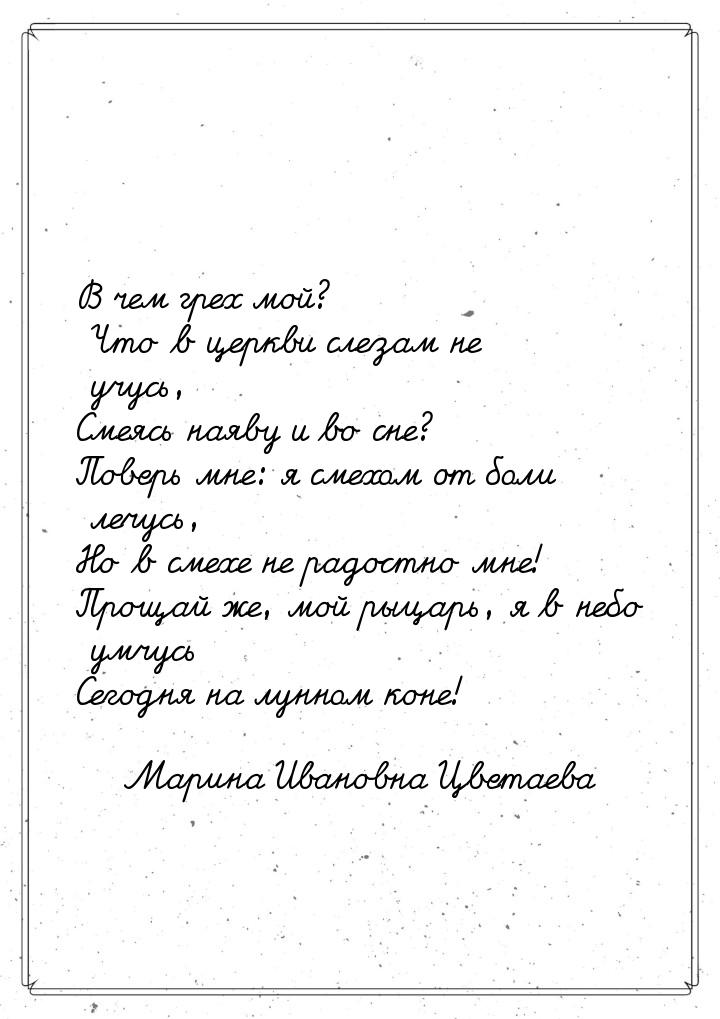 В чем грех мой?
Что в церкви слезам не
учусь,
Смеясь наяву и во сне?
Поверь мне: я смехом от боли
лечусь,
Но в смехе не радостно мне!
Прощай же, мой рыцарь, я в небо
умчусь
Сегодня на лунном коне!
Марина Ивановна Цветаева